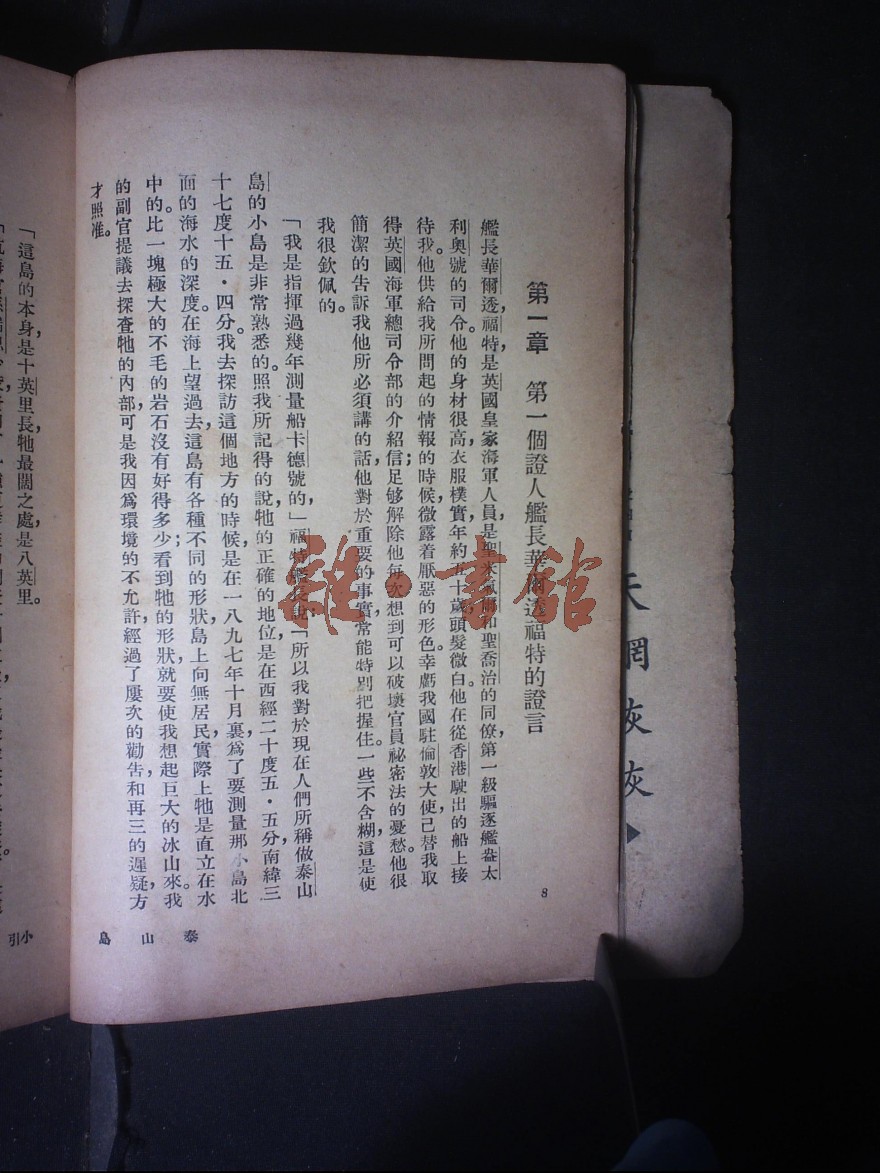 第一章　第一個證人艦長華爾透福特的證言
艦長華爾透福特，是英國皇家海軍人員，是聖米氣爾和聖喬治的同僚，第一級驅逐艦盎太
利奧號的司令。他的身材很高，衣服樸實，年約五十歲，頭髮微白。他在從香港駛出的船上接
待我。他供給我所問起的情報的時候，微露着厭惡的形色。幸虧我國駐倫敦大使已替我取
得英國海軍總司令部的介紹信；足够解除他每次想到可以破壞官員祕密法的憂愁。他很
簡潔的告訴我他所必須講的話，他對於重要的事實，常能特別把握住。一些不含糊，這是使
我很欽佩的。
「我是指揮過幾年測量船卡德號的，」福特艦長說；「所以我對於現在人們所稱做泰山
島的小島是非常熟悉的。照我所記得的說，牠的正確的地位是在西經二十度五・五分，南緯三
十七度十五・四分。我去探訪這個地方的時候，是在一八九七年十月裏，爲了要測量那小島北
面的海水的深度。在海上望過去，這島有各種不同的形狀，島上向無居民，實際上牠是直立在水
中的。比一塊極大的不毛的岩石沒有好得多少；看到牠的形狀，就要使我想起巨大的冰山來。我
的副官提議去探查牠的內部，可是我因爲環境的不允許，經過了屢次的勸告，和再三的遲疑，方
才照准。
8
泰山島
「這島的本身，是十英里長，牠最闊之處，是八英里。
小引
天網恢恢
雜・書館